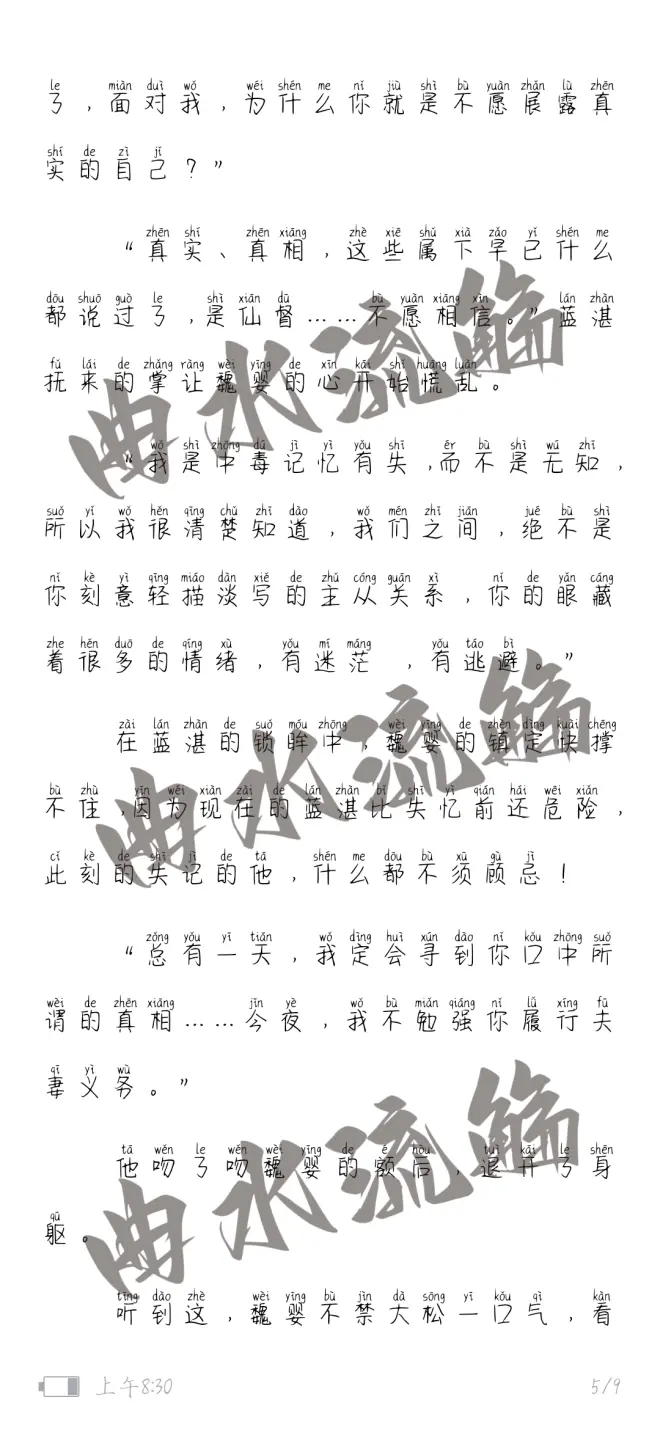 le miàn duì wǒ wéi shén me nǐ jiù shì bù yuàn zhǎn lù zhēn
了，面对我，为什么你就是不愿展露真
shí de zì jǐ
实的自己？”
zhēn shí zhēn xiāng zhè xiē shǔ xià zǎo yǐ shén me
“真实、真相，这些属下早已什么
dōu shuō guò le shì xiān dū bù yuàn xiāng xìn lán zhàn
都说过了，是仙督……不愿相信。”蓝湛
fǔ lái de zhǎng ràng wèi yīng de xīn kāi shǐ huāng luàn
抚来的掌让魏婴的心开始慌乱。
曲水流觞
wǒ shì zhōng dú jì yì yǒu shī ér bù shì wú zhī
“我是中毒记忆有失，而不是无知，
suǒ yǐ wǒ hěn qīng chǔ zhī dào wǒ mén zhī jiān jué bù shì
所以我很清楚知道，我们之间，绝不是
nǐ kè yì qīng miáo dàn xiě de zhǔ cóng guān xì nǐ de yǎn cáng
你刻意轻描淡写的主从关系，你的眼藏
zhe hěn duō de qíng xù yǒu mí máng yǒu táo bì
着很多的情绪，有迷茫，有逃避。”
zài lán zhàn de suǒ móu zhōng wèi yīng de zhèn dìng kuài chēng
在蓝湛的锁眸中，魏婴的镇定快撑
bù zhù yīn wéi xiàn zài de lán zhàn bǐ shī yì qián hái wēi xiǎn
不住，因为现在的蓝湛比失忆前还危险，
曲水流觞
cǐ kè de shī jì de tā shén me dōu bù xū gù jì
此刻的失记的他，什么都不须顾忌！
zǒng yǒu yī tiān wǒ dìng huì xún dào nǐ kǒu zhōng suǒ
“总有一天，我定会寻到你口中所
wèi de zhēn xiāng jīn yè wǒ bù miǎn qiáng nǐ lǚ xíng fū
谓的真相……今夜，我不勉强你履行夫
qī yì wù
妻义务。”
tā wěn le wěn wèi yīng de é hòu tuì kāi le shēn
他吻了吻魏婴的额后，退开了身
qū
躯。
曲水流觞
tīng dào zhè wèi yīng bù jìn dà sōng yī kǒu qì kàn
听到这，魏婴不禁大松一口气，看
上午8:30
5/9